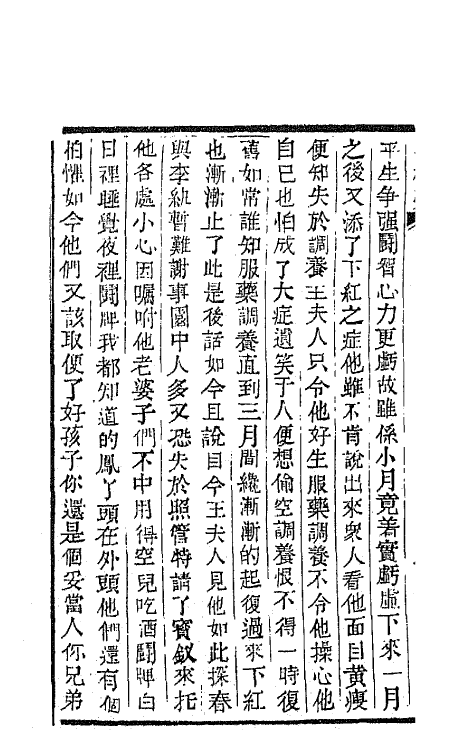 平生争强鬪智心力更虧故雖係小月竟着實虧虛下來一月
之後又添了下紅之症他雖不肯說出來衆人看他面目黄瘦
便知失於調養王夫人只令他好生服藥調養不令他操心他
自已也怕成了大症遺笑于人便想偷空調養恨不得一時復
舊如常誰知服藥調養直到三月間纔漸漸的起復過來下紅
也漸漸止了此是後話如今且說目今王夫人見他如此探春
與李紈暫難謝事園中人多又恐失於照管特請了寳釵來托
他各處小心因囑咐他老婆子們不中用得空兒吃酒鬪牌白
日裡睡覺夜裡鬪牌我都知道的鳳丫頭在外頭他們還有個
怕懼如今他們又該取便了好孩子你還是個妥當人你兄弟